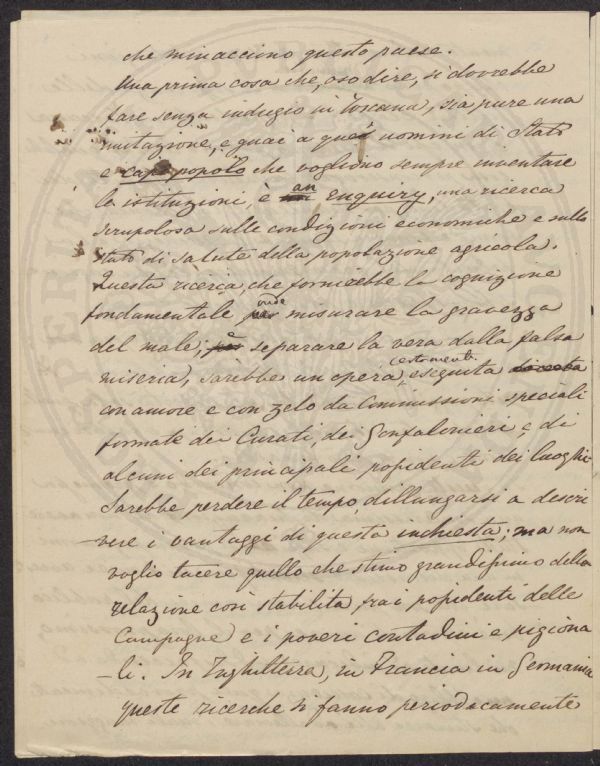 che minacciano questo paese.
Una prima cosa che, oso dire, si dovrebbe
fare senza indugio in Toscana, sia pure una
imitazione, e guai a quei uomini di Stato
e capi popolo che vogliono sempre inventare
le istituzioni, è an enquiry, una ricerca
scrupolosa sulle condizioni economiche e sullo
stato di salute della popolazione agricola.
Questa ricerca, che fornirebbe la cognizione
fondamentale onde misurare la gravezza
del male, separare la vera dalla falsa
miseria, sarebbe un opera certamenti eseguita
con amore e con zelo da Commissioni speciali
formate dei Curati, dei Gonfalonieri e di
alcuni dei principali possidenti dei luoghi.
Sarebbe perdere il tempo dillungarsi a descri
vere i vantaggi di questa inchiesta; ma non
voglio tacere quello che stimo grandissimo della
relazione così stabilita, fra i possidenti delle
Campagne e i poveri contadini e pigiona
-li. In Inghilterra, in Francia in Germania
queste ricerche si fanno periodocamente